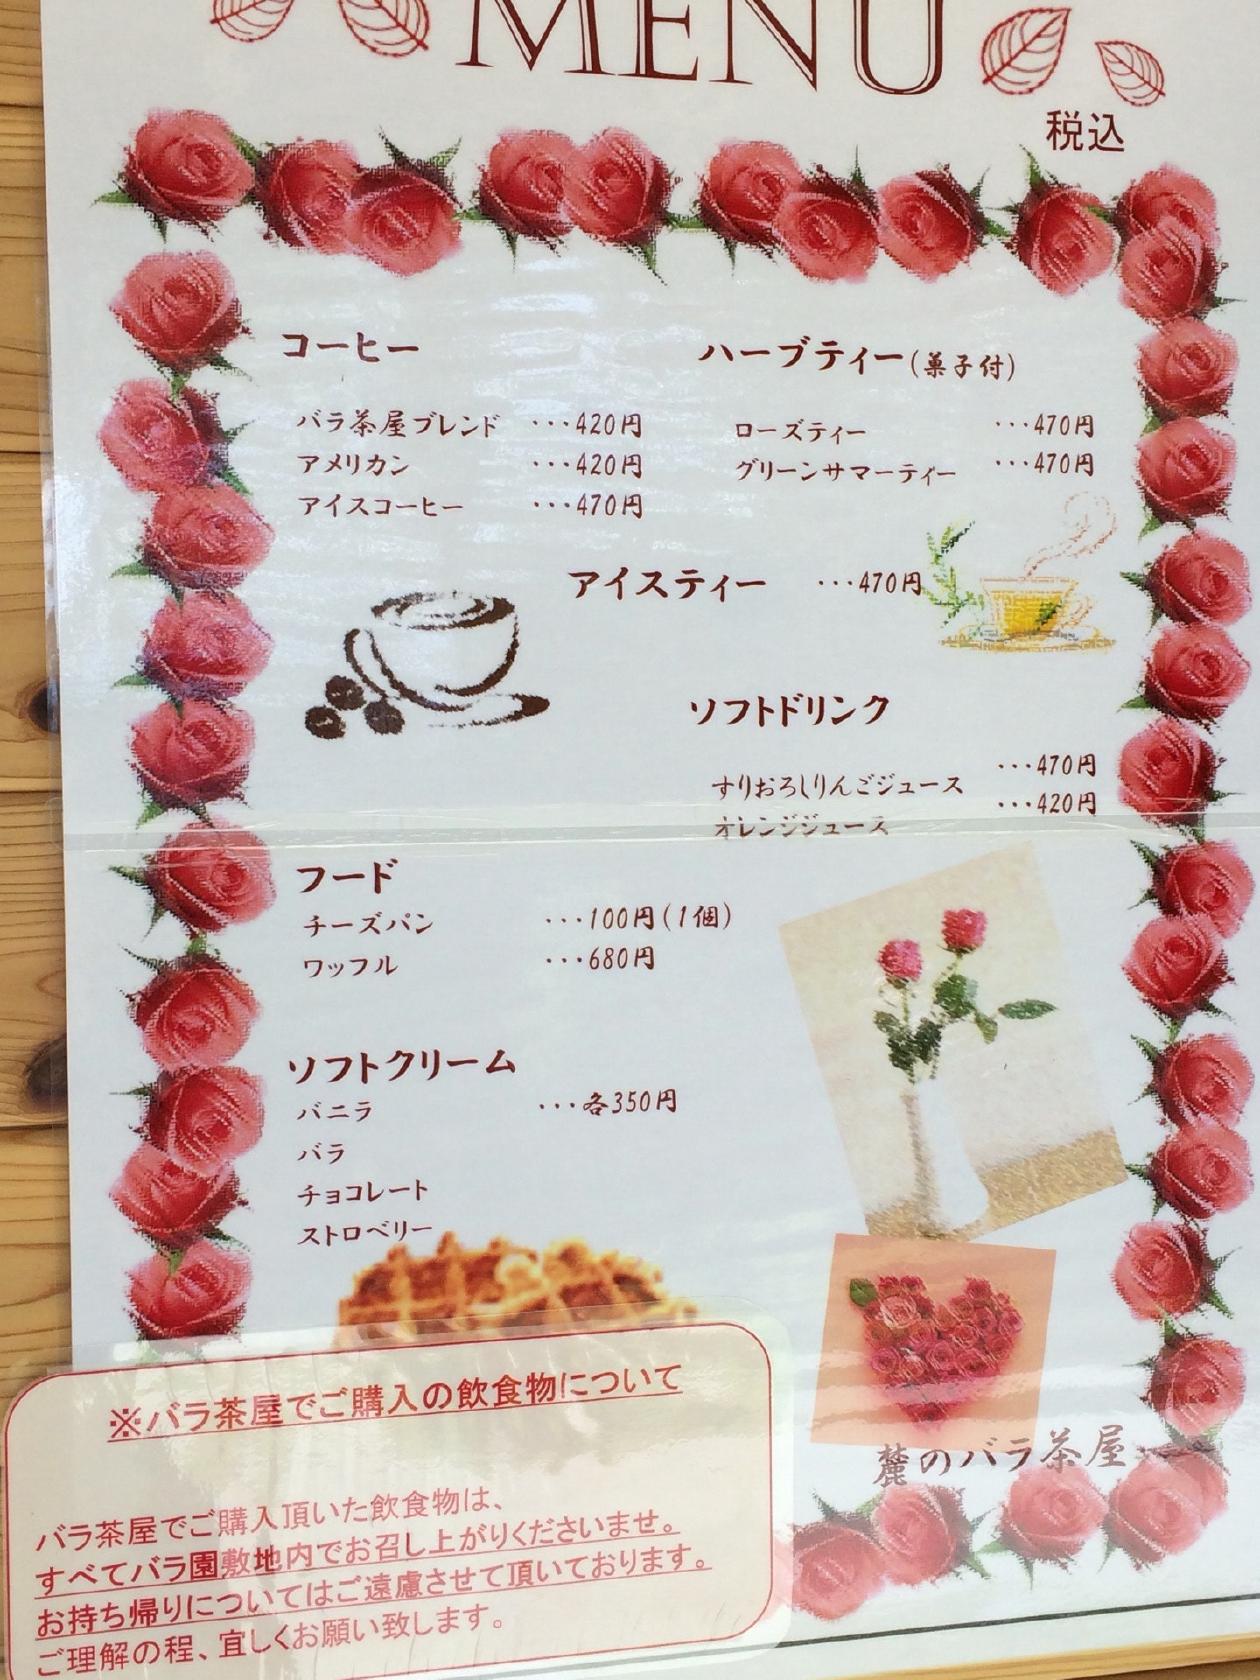 MENU
税込
コーヒー
バラ茶屋ブレンド ･･･420円
アメリカン ･･･420円
アイスコーヒー ･･･470円
ハーブティー(菓子付)
ローズティー ･･･470円
グリーンサマーティー ･･･470円
アイスティー ･･･470円
ソフトドリンク
すりおろしりんごジュース ･･･470円
オレンジジュース ･･･420円
フード
チーズパン ･･･100円(1個)
ワッフル ･･･680円
ソフトクリーム
バニラ ･･･各350円
バラ
チョコレート
ストロベリー
麓のバラ茶屋
※バラ茶屋でご購入の飲食物について
バラ茶屋でご購入頂いた飲食物は、
すべてバラ園敷地内でお召し上がりくださいませ。
お持ち帰りについてはご遠慮させて頂いております。
ご理解の程、宜しくお願い致します。